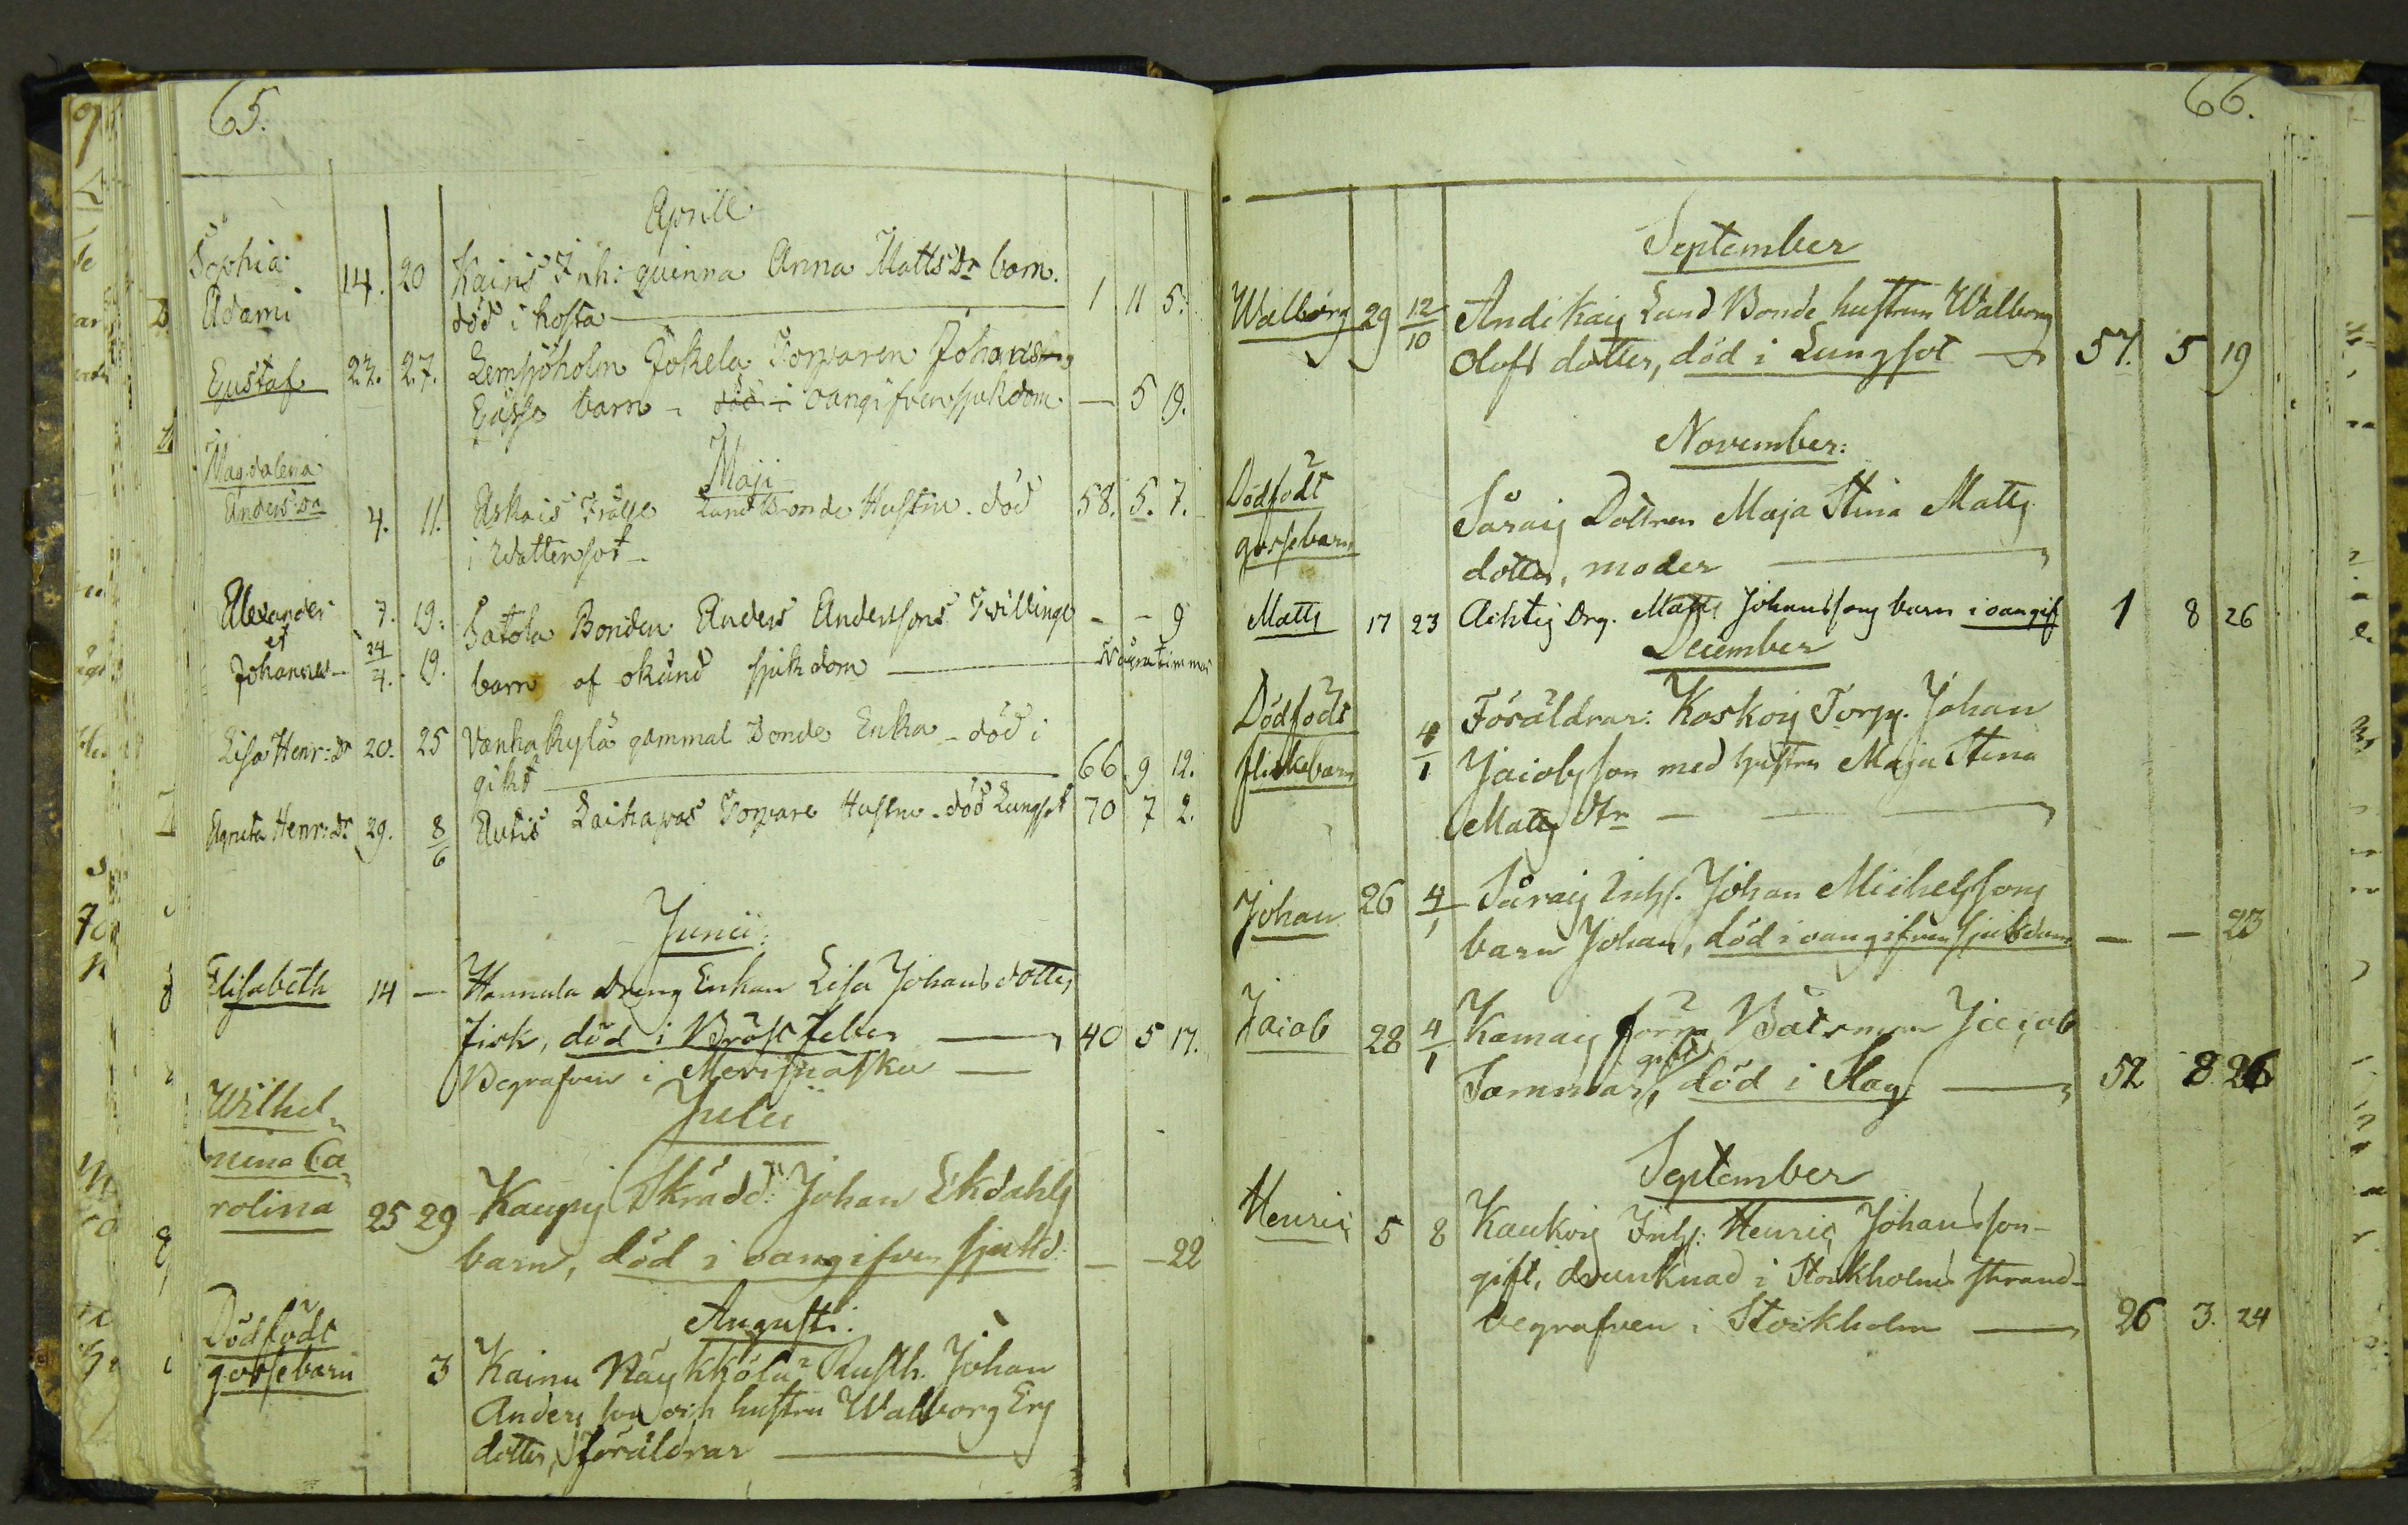 65.
Aprill
Sophia 14. 20 Kairis Inh: quinna Anna Matts Dr barn.
Adami död i hosta 1 11 5.
Gustaf 22. 27. Lemsjöholm Jokela Torparen Johans
barn - död i oangifven sjukdom — 5 19.
Maji
Magdalena
Anders Dr 4. 11. Askais Frälse Land Bonde Hustru. död 58. 5. 7.
i Wattensot
Alexander 7. 19. Satola Bonden Anders Anderssons Twillinge - - 9
et
Johannes 24/4. 19. barn af okänd sjukdom — Några timmar
Lisa Henr: Dr 20. 25 Wanhakylä gammal Bonde Enka - död i
gikt 66. 9 12.
Agneta Henr: Dr 29. 8/6 Autis Torpare Hustru - död Lungsot 70 7 2.
Junii:
Elisabeth 14 — Hannula Dreng Enkan Lisa Johansdotter
Fisk, död i Bröst feber — 40 5 17.
Begrafven i —
Julii
Wilhel-
mina Ca-
rolina 25 29 Kaupis Skrädd: Johan Ekdahls
barn, död i oangifven sjukd: — - 22
Augusti.
Dödfödt
gossebarn 3 Kainu Rusth. Johan
Andersson och hustru Walborg Ers
dotter, föräldrar —
66.
September
Walborg 29 12/10 Andikais Land Bonde hustrun Walborg
Olofs dotter, död i Lungsot — 57. 5 19
November:
Dödfödt Särais Dottren Maja Stina Matts
gossebarn dotter, moder —
Matts 17 23 Achtis Drg. Matts Johanssons barn i oangif 1 8 26
December
Dödfödt 4/1 Föräldrar: Koskois Torpp. Johan
flickebarn Jacobsson med hustru Maja Stina
Matts Dtr —
Johan 26 4/1 Särais Inhs. Johan Michelssons
barn Johan, död i oangifven sjukdom — — 23
Jacob 28 4/1 Kamais förra Båtsman Jacob
Sommar, gift, död i Slag — 52 8 26
September
Henric 5 8 Kaukois Inhs: Henric Johansson-
gift, drunknad i Stockholms strand-
begrafven i Stockholm — 26 3. 24